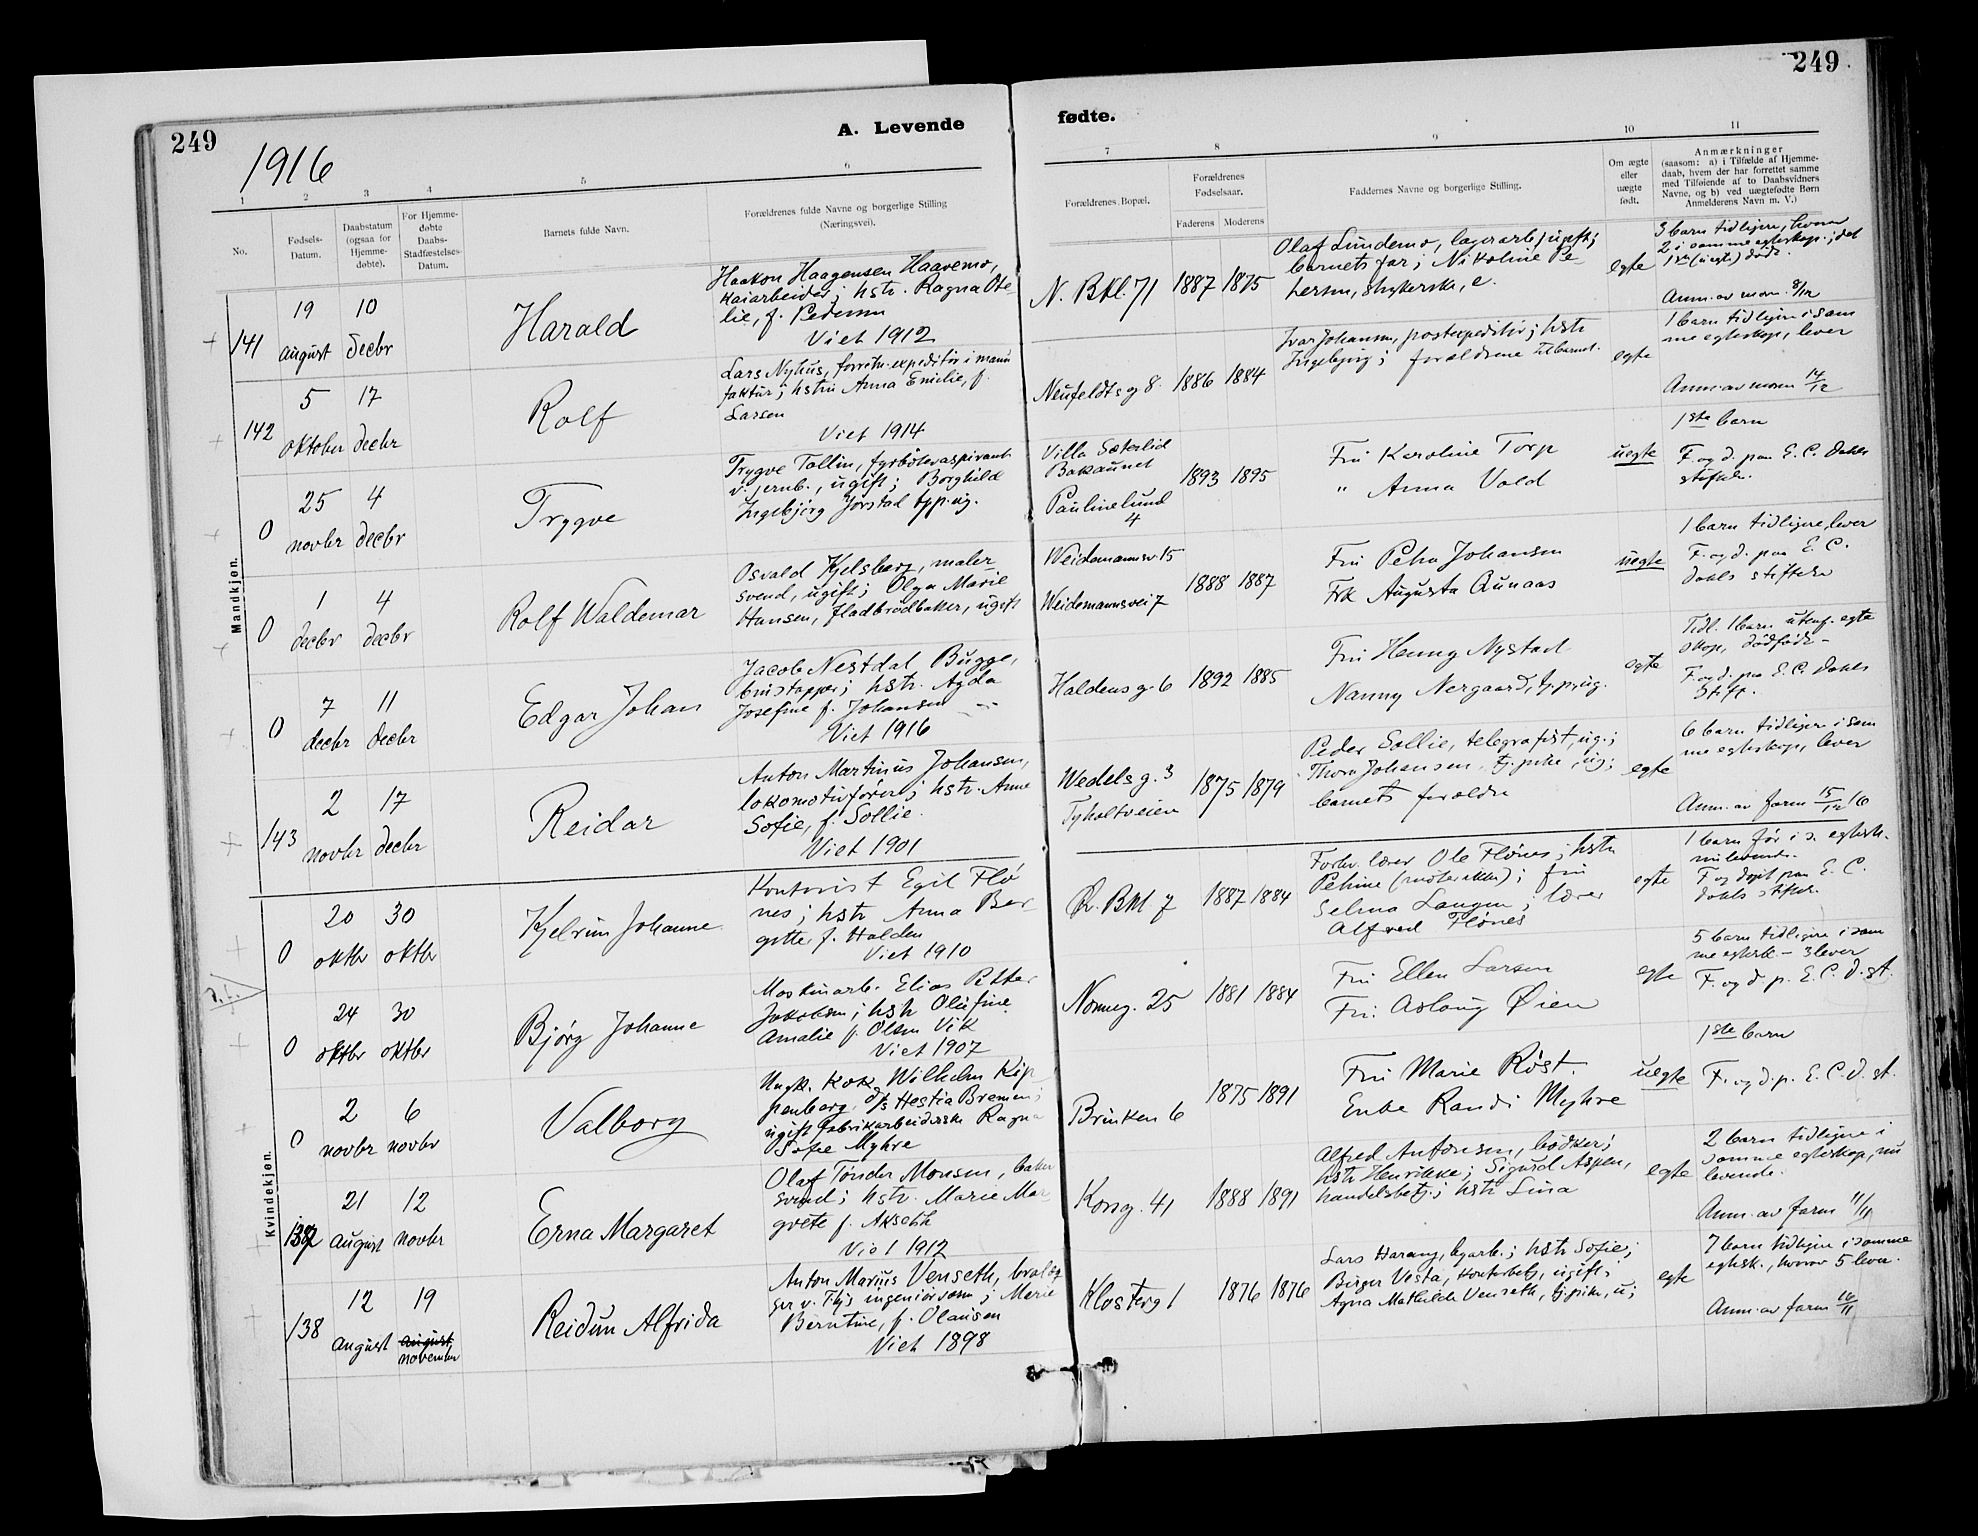 249
249
A. Levende
fødte.
1916
1
2
3
4
5
6
7
8
9
10
11
No.
Fødsels-
Datum.
Daabstatum
(ogsaa for
Hjemme-
døbte).
For Hjemme-
døbte
Daabs-
Stadfæstelses-
Datum.
Barnets fulde Navn.
Forældrenes fulde Navne og borgerlige Stilling
(Næringsvei).
Forældrenes Bopæl.
Forældrenes
Fødselsaar.
Faderens
Moderens
Faddernes Navne og borgerlige Stilling.
Om ægte
eller
uægte
født.
Anmærkninger
(saasom: a) i Tilfælde af Hjemme-
daab, hvem der har forrettet samme
med Tilføiende af to Daabsvidners
Navne, og b) ved uægtefødte Børn
Anmelderens Navn m. V.)
Mandkjøn.
141
19
august
10
decbr
Harald
Haakon Haagensen Haavemo,
kaiarbeider; hstr. Ragna Ote-
lie, f. Pedersen
Viet 1912
N. Bkl. 71
1887
1875
Olaf Lundemo, lagerarb., ugift;
barnets far; Nikoline Pe
tersen, strykerske, e.
egte
3 barn tidligere, hvorav
2 i samme egteskap; det
1ste (uegte) død.
Anm. av mor. 8/12
142
5
oktober
17
decbr
Rolf
Lars Nyhus, forretn. expeditør i manu
faktur; hstru Anna Emilie, f.
Larsen
Viet 1914
Neufeldts g 8
1886
1884
Ivar Johansen, postexpeditør; hstr
Ingebjørg; forældrene til barnet.
egte
1 barn tidligere i sam
me egteskap, lever
Anm. av moren 14/12
0
25
novbr
4
decbr
Trygve
Trygve Tollin, fyrbøteraspirant
v. jernb., ugift; Borghild
Ingebjørg Jørstad tjp. ug.
Villa Sæterlid
Bakaunet
Paulinelund
4
1893
1895
Fru Karoline Torp
" Anna Vold
uegte
1ste barn
F. og d. paa E. C. Dahls
stiftelse.
0
1
decbr
4
decbr
Rolf Waldemar
Osvald Kjelsberg, maler
svend, ugift; Olga Marie
Hansen, fladbrødbaker, ugift
Weidemannsv. 15
Weidemannsvei 7
1888
1887
Fru Petra Johansen
Frk Augusta Aunaas
uegte
1 barn tidligere, lever
F. og d. paa E. C.
Dahls stiftelse
0
7
decbr
11
decbr
Edgar Johan
Jacob Nestdal Bugge,
hstr. Agda
Josefine f. Johansen
Viet 1916
Haldens g. 6
1892
1885
Fru Henny Nystad
Nanny Nergaard, tjp. ug.
egte
Tidl. 1 barn utenf. egte
skap, dødfødt –
F. og d. paa E. C. Dahls
Stift.
143
2
novbr
17
decbr
Reidar
Anton Martinus Johansen,
lokomotivfører; hstr. Anne
Sofie, f. Sollie
Viet 1901
Wedels g. 3
Tyholtveien
1875
1879
Peder Sollie, telegrafist, ug.;
Thora Johansen, tj. pike, ug;
barnets forældre
egte
6 barn tidligere i sam
me egteskap, lever
Anm. av faren 15/12 16
Kvindekjøn.
0
20
oktbr
30
oktbr
Kjelrun Johanne
Kontorist Egil Flø
nes; hstr Anna Ber-
gitte f. Halden
Viet 1910
Ø. Bkl 7
1887
1884
Forhv. lærer Ole Flønes; hstr
Petrine (møter ikke); fru
Selma Langen; lærer
Alfred Flønes
egte
1 barn før i s. egtesk.
nulevende.
F og døpt paa E. C.
Dahls stiftelse.
0
24
oktbr
30
oktbr
Bjørg Johanne
Maskinarb. Elias Petter
Jakobsen; hstr Olufine
Amalie f. Olsen Vik
Viet 1907
Nonneg. 25
1881
1884
Fru Ellen Larsen
Fru Aslaug Øien
egte
5 barn tidligere i sam
me egtesk – 3 lever
F. og d. p. E. C. D. st.
0
2
novbr
6
novbr
Valborg
Ungk. kok Wilhelm Kip
penberg, d/s Hestia Bremen;
ugift fabrikarbeiderske Ragna
Sofie Myhre
Brinken 6
1875
1891
Fru Marie Røst.
Enke Randi Myhre
uegte
1ste barn
F. og d. p. E. C. D. st.
137
21
august
12
novbr
Erna Margaret
Olaf Tønder Monsen, baker
svend; hstr. Marie Mar
grete f. Aksetth
Viet 1912
Kongg. 41
1888
1891
Alfred Antonsen, bødker;
hstr Henrikke; Sigurd Aspen,
handelsbetj.; hstr Lina
egte
2 barn tidligere i
samme egteskap, nu
levende.
Anm. av faren 11/11
138
12
august
19
august
november
Reidun Alfrida
Anton Marius Venseth,
Berntine, f. Olausen
Viet 1898
Klosterg 1
1876
1876
Lars Harang, byarb.; hstr Sofie;
Birger Vesta, kontorbetj, ugift;
Agna Mathilde Venseth, tj.pike, u;
egte
7 barn tidligere i samme
egtesk., hvorav 5 lever.
Anm. av faren 16/11